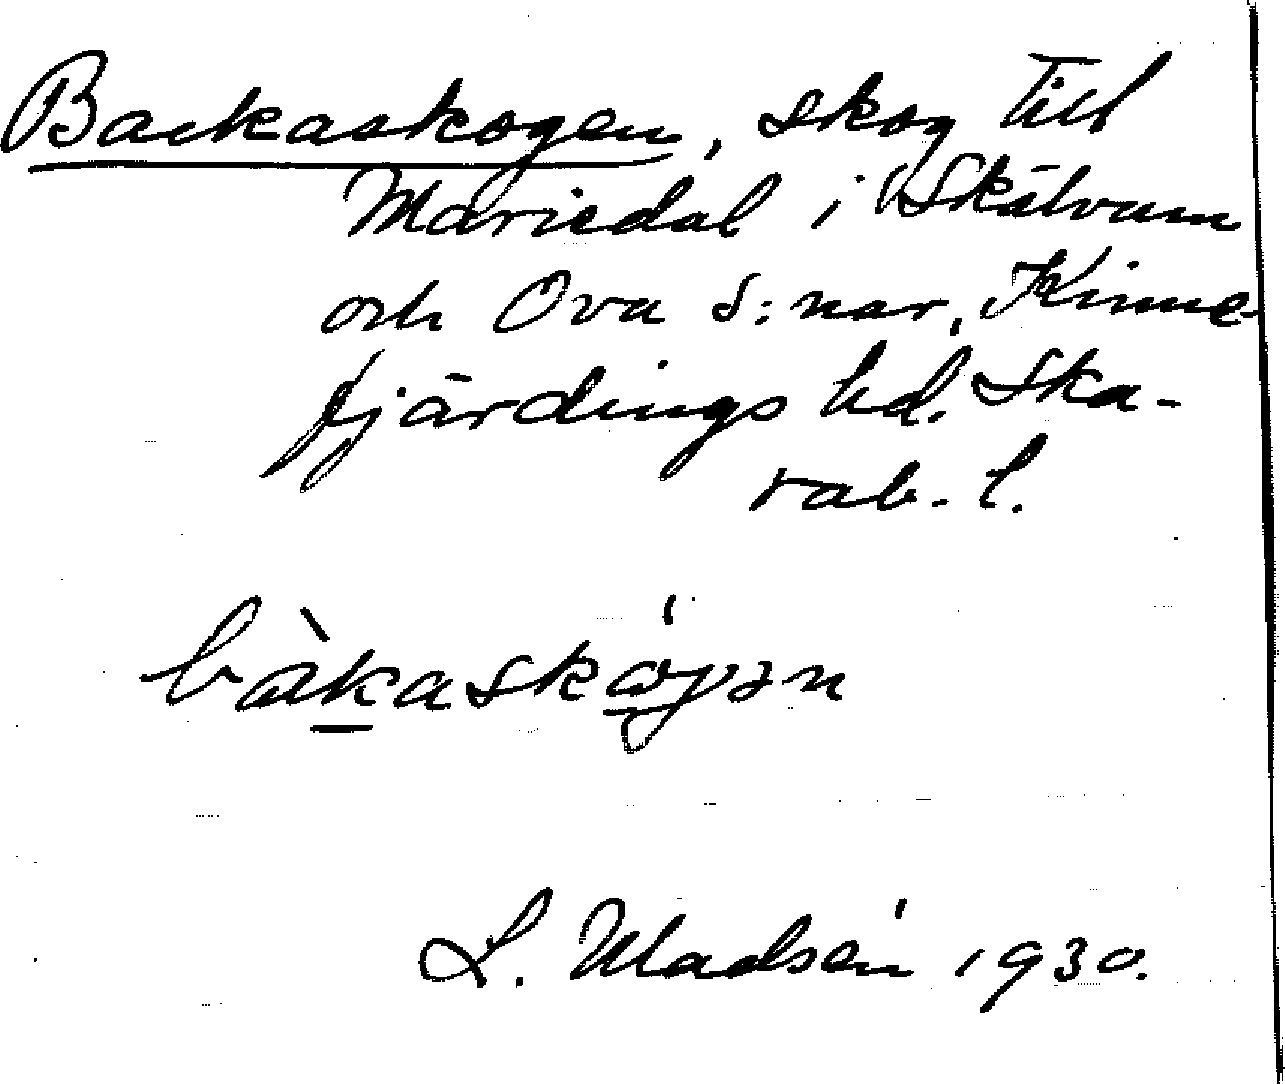 Backaskogen, skog till
Mariedal i Skälvum
och Ova s:nar, Kinne-
fjärdings hd. Ska-
rab. l.
bàkaskóɡən
L. Madsén 1930.